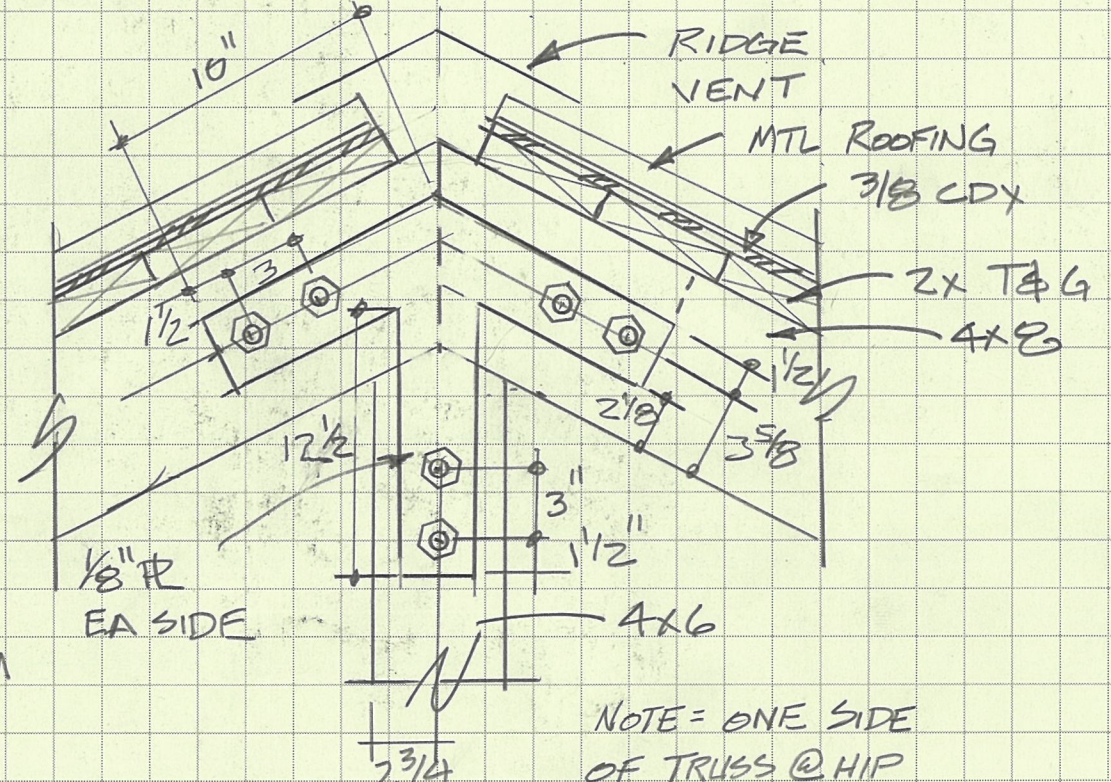 10"
RIDGE
VENT
MTL ROOFING
3/8 CDX
2X T&G
4X8
3
1 1/2
1 1/2
2 1/8
3 5/8
12 1/2
3"
1 1/2"
1/8" PL
EA SIDE
4X6
2 3/4
NOTE = ONE SIDE
OF TRUSS @ HIP